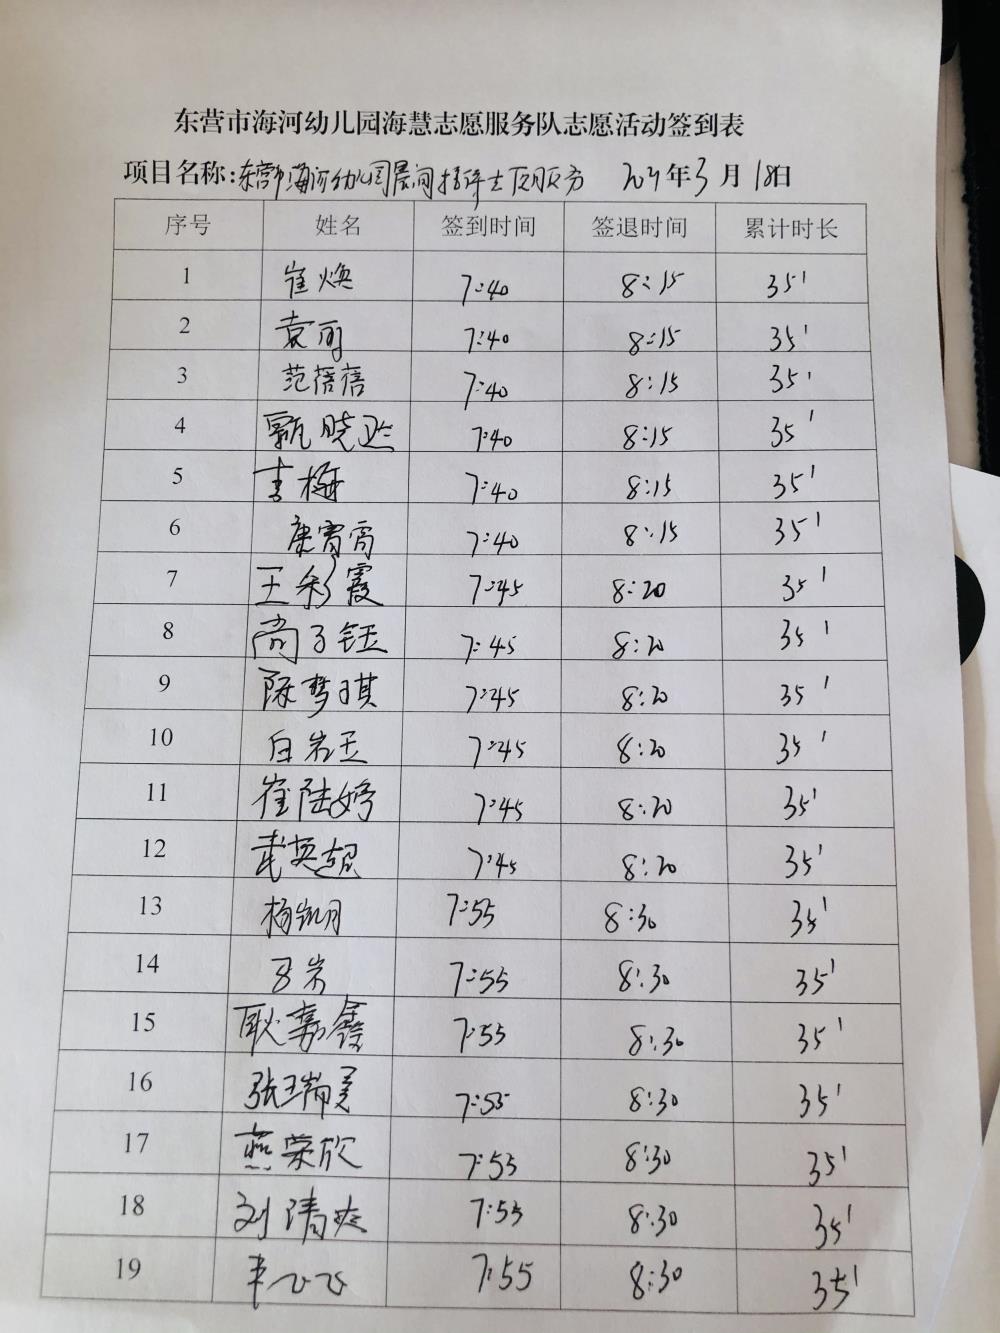 东营市海河幼儿园海慧志愿服务队志愿活动签到表
项目名称:东营市海河幼儿园晨间 年3月18日
序号 姓名 签到时间 签退时间 累计时长
1 崔焕 7:40 8:15 35'
2 袁丽 7:40 8:15 35'
3 范蓓蓓 7:40 8:15 35'
4 甄晓 7:40 8:15 35'
5 李梅 7:40 8:15 35'
6 康霄霄 7:40 8:15 35'
7 王彩霞 7:45 8:20 35'
8 尚子钰 7:45 8:20 35'
9 陈梦琪 7:45 8:20 35'
10 白岩玉 7:45 8:20 35'
11 崔陆婷 7:45 8:20 35'
12 武英超 7:45 8:20 35'
13 杨凯月 7:55 8:30 35'
14 岩 7:55 8:30 35'
15 耿嘉鑫 7:55 8:30 35'
16 张瑞美 7:55 8:30 35'
17 燕荣欣 7:55 8:30 35'
18 刘清爽 7:55 8:30 35'
19 7:55 8:30 35'